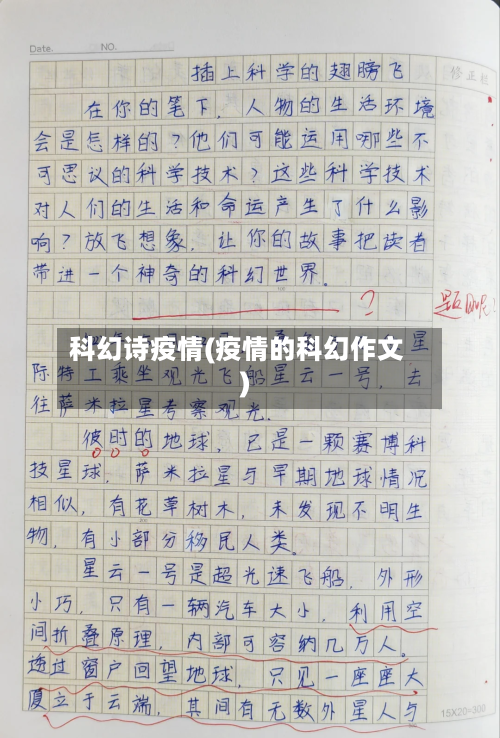 Date. NO.
修正栏
插上科学的翅膀飞
在你的笔下,人物的生活环境
会是怎样的?他们可能运用哪些不
可思议的科学技术?这些科学技术
对人们的生活和命运产生了什么影
响?放飞想象,让你的故事把读者
带进一个神奇的科幻世界。
?
题目呢?
科幻诗疫情(疫情的科幻作文
)
星
际特工乘坐观光飞船星云一号,去
往萨米拉星考察观光.
彼时的地球,已是一颗赛博科
技星球,萨米拉星与早期地球情况
相似,有花草树木,未发现不明生
物,有小部分移民人类。
星云一号是超光速飞船,外形
小巧,只有一辆汽车大小,利用空
间折叠原理,内部可容纳几万人。
透过窗户回望地球,只见一座座大
厦立于云端,其间有无数外星人与
15X20=300